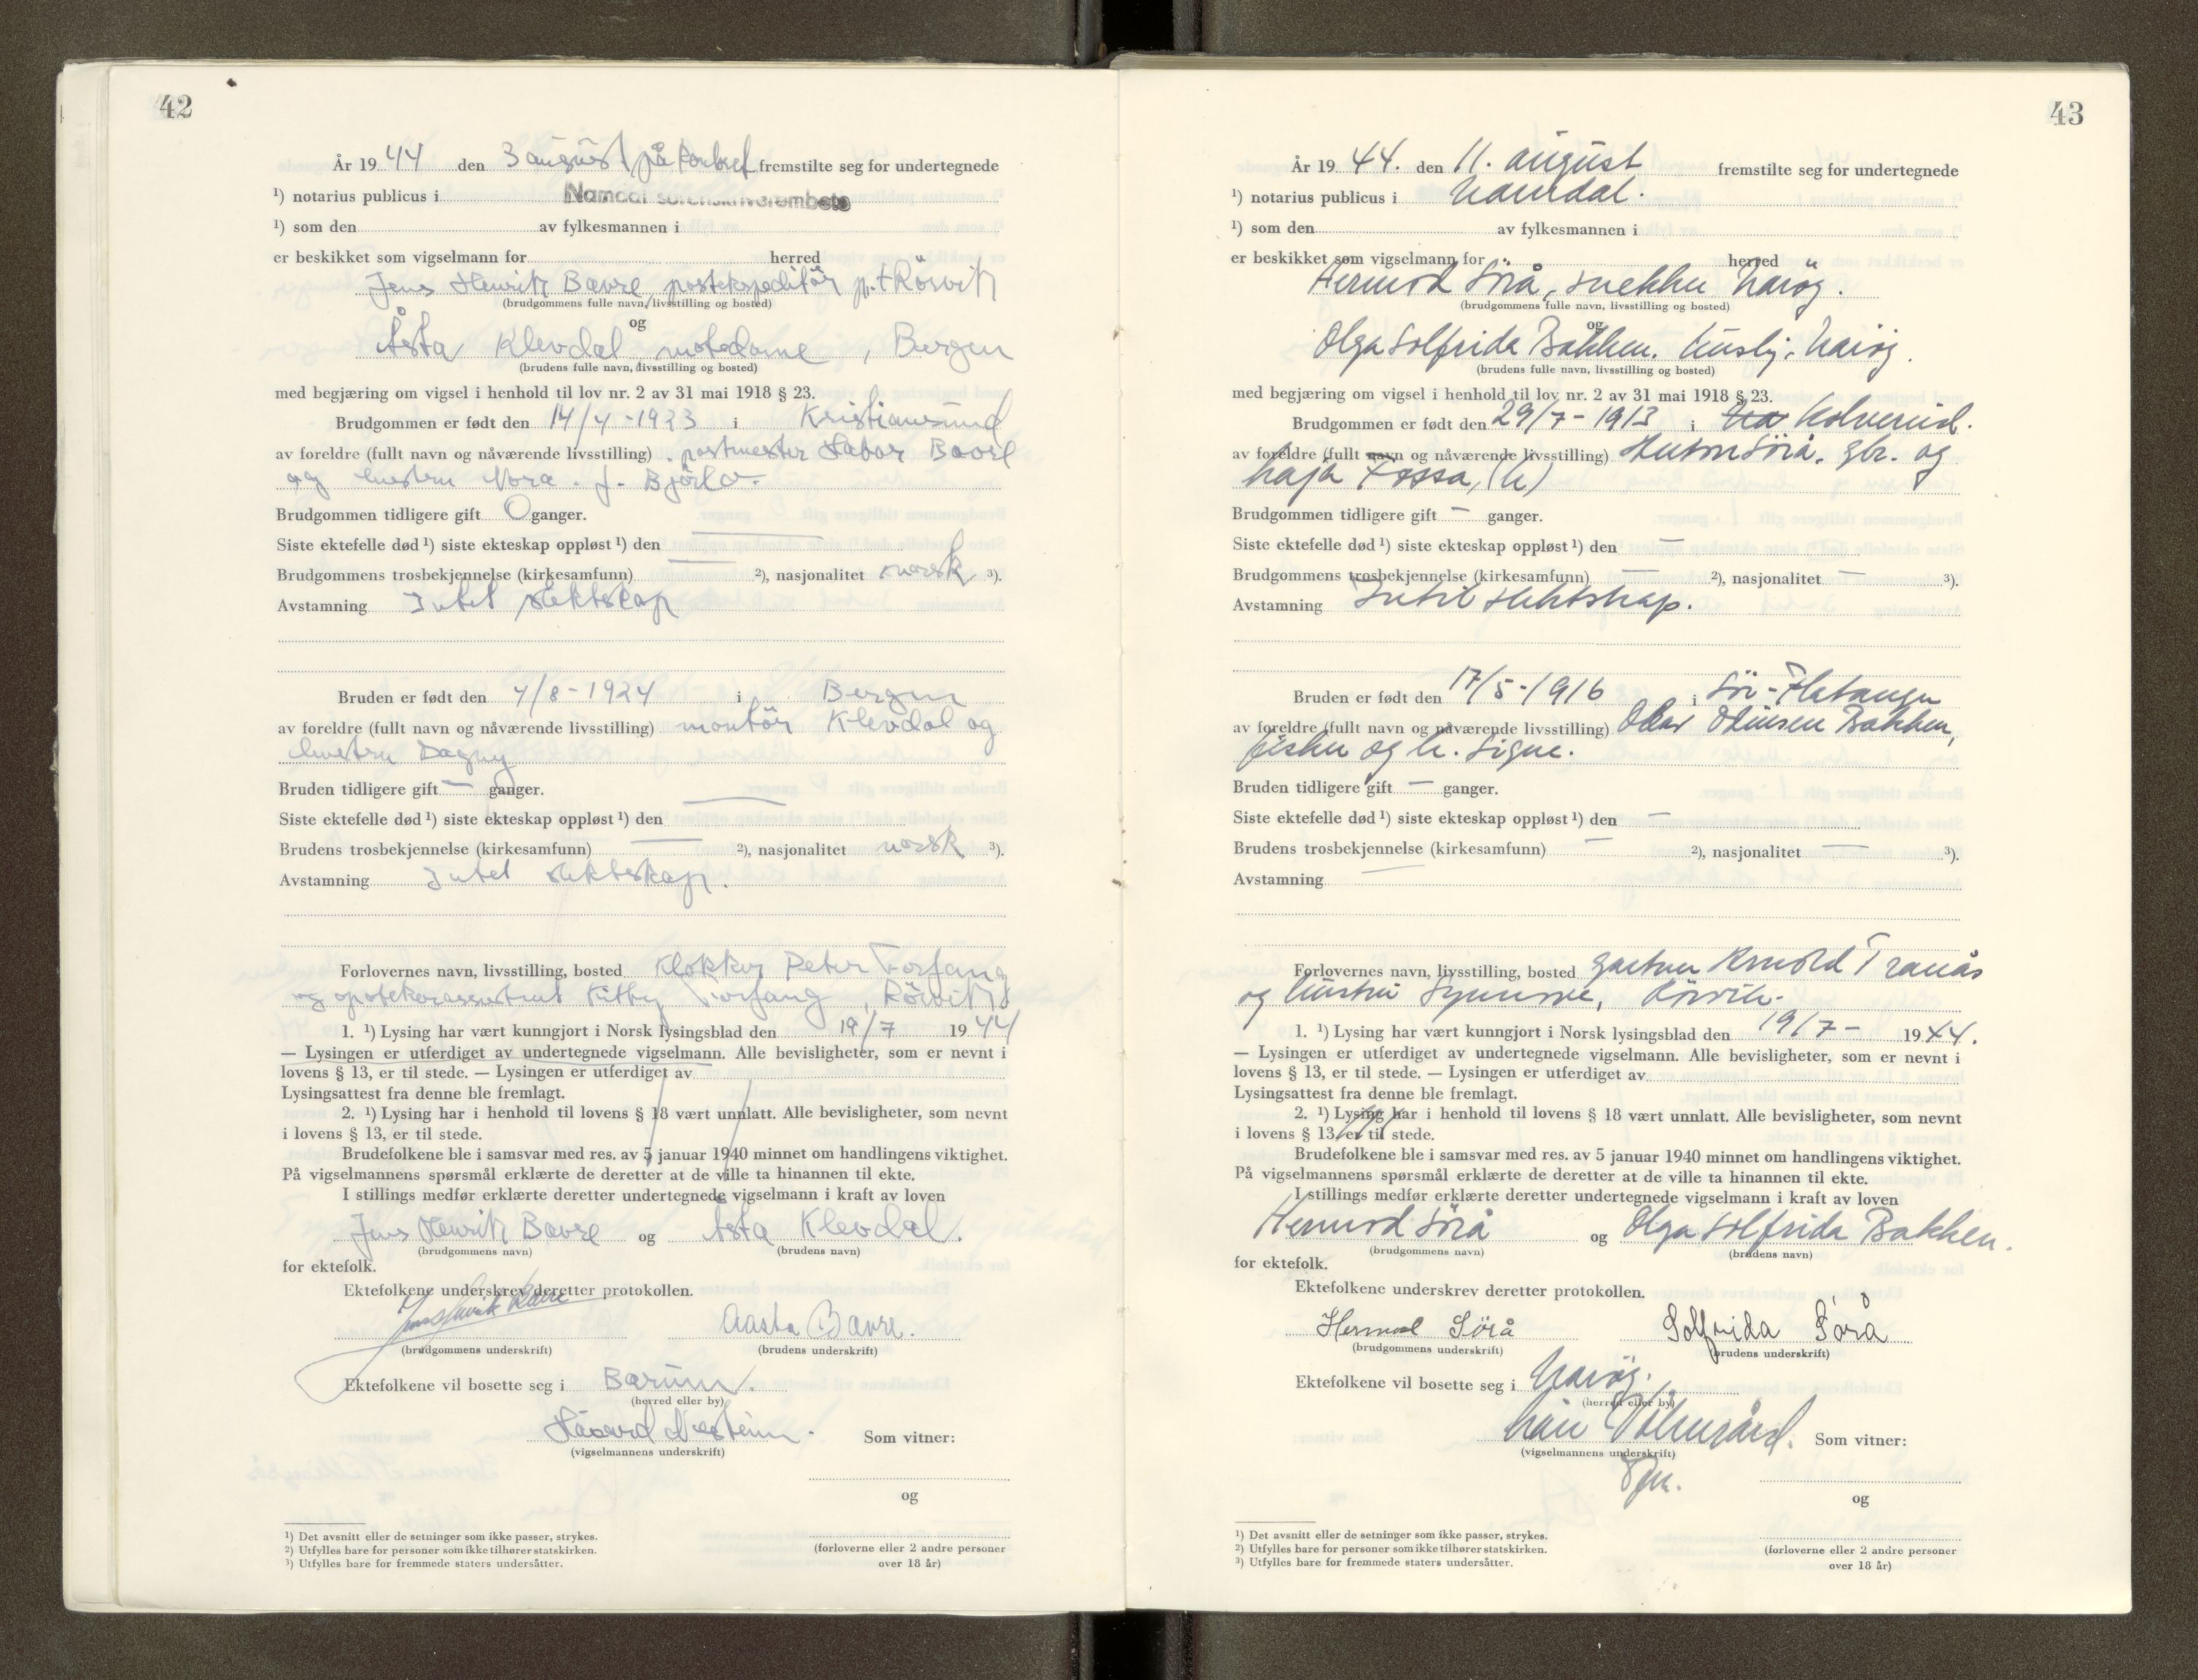 42
År 19 44 den 3 august på kontoret fremstilte seg for undertegnede
¹) notarius publicus i Namdal sorenskriverembete
¹) som den av fylkesmannen i
er beskikket som vigselmann for herred
Jens Henrik Bavre, postekspeditör p.t Rörvik
(brudgommens fulle navn, livsstilling og bosted)
og
Åsta Klevdal motedame, Bergen
(brudens fulle navn, livsstilling og bosted)
med begjæring om vigsel i henhold til lov nr. 2 av 31 mai 1918 § 23.
Brudgommen er født den 14/4-1923 i Kristiansund
av foreldre (fullt navn og nåværende livsstilling) postmester Bavre
og hustru Nora f.
Brudgommen tidligere gift 0 ganger.
Siste ektefelle død ¹) siste ekteskap oppløst ¹) den —
Brudgommens trosbekjennelse (kirkesamfunn) — ²), nasjonalitet norsk ³).
Avstamning Intet slektskap
Bruden er født den 4/8-1924 i Bergen
av foreldre (fullt navn og nåværende livsstilling) montör Klevdal og
hustru Dagny
Bruden tidligere gift — ganger.
Siste ektefelle død ¹) siste ekteskap oppløst ¹) den —
Brudens trosbekjennelse (kirkesamfunn) — ²), nasjonalitet norsk ³).
Avstamning Intet slektskap.
Forlovernes navn, livsstilling, bosted Klokker Peter Forfang
og Kitty Forfang, Rörvik
1. ¹) Lysing har vært kunngjort i Norsk lysingsblad den 19/7 19 44
— Lysingen er utferdiget av undertegnede vigselmann. Alle bevisligheter, som er nevnt i
lovens § 13, er til stede. — Lysingen er utferdiget av
Lysingsattest fra denne ble fremlagt.
2. ¹) Lysing har i henhold til lovens § 18 vært unnlatt. Alle bevisligheter, som nevnt
i lovens § 13, er til stede.
Brudefolkene ble i samsvar med res. av 5 januar 1940 minnet om handlingens viktighet.
På vigselmannens spørsmål erklærte de deretter at de ville ta hinannen til ekte.
I stillings medfør erklærte deretter undertegnede vigselmann i kraft av loven
Jens Henrik Bavre og Åsta Klevdal.
(brudgommens navn) (brudens navn)
for ektefolk.
Ektefolkene underskrev deretter protokollen.
Jens Henrik Bavre Aasta Bavre.
(brudgommens underskrift) (brudens underskrift)
Ektefolkene vil bosette seg i Bærum.
(herred eller by)
Håvard
(vigselmannens underskrift) Som vitner:
og
¹) Det avsnitt eller de setninger som ikke passer, strykes.
²) Utfylles bare for personer som ikke tilhører statskirken.
³) Utfylles bare for fremmede staters undersåtter.
(forloverne eller 2 andre personer
over 18 år)
43
År 19 44. den 11. august fremstilte seg for undertegnede
¹) notarius publicus i Namdal.
¹) som den av fylkesmannen i
er beskikket som vigselmann for herred
Hermod Sörå, snekker Nærøy.
(brudgommens fulle navn, livsstilling og bosted)
og
Olga Solfrida Bakken. Nærøy.
(brudens fulle navn, livsstilling og bosted)
med begjæring om vigsel i henhold til lov nr. 2 av 31 mai 1918 § 23.
Brudgommen er født den 29/7-1913 i Kolvereid.
av foreldre (fullt navn og nåværende livsstilling) Sörå, gbr. og
(h)
Brudgommen tidligere gift — ganger.
Siste ektefelle død ¹) siste ekteskap oppløst ¹) den —
Brudgommens trosbekjennelse (kirkesamfunn) — ²), nasjonalitet — ³).
Avstamning Intet slektskap.
Bruden er født den 17/5-1916 i Sör-Flatanger
av foreldre (fullt navn og nåværende livsstilling) Bakken,
fisker og h. Signe.
Bruden tidligere gift — ganger.
Siste ektefelle død ¹) siste ekteskap oppløst ¹) den —
Brudens trosbekjennelse (kirkesamfunn) — ²), nasjonalitet — ³).
Avstamning —
Forlovernes navn, livsstilling, bosted gartner Arnold Tranås
og hustru Synnøve, Rörvik.
1. ¹) Lysing har vært kunngjort i Norsk lysingsblad den 19/7- 19 44.
— Lysingen er utferdiget av undertegnede vigselmann. Alle bevisligheter, som er nevnt i
lovens § 13, er til stede. — Lysingen er utferdiget av
Lysingsattest fra denne ble fremlagt.
2. ¹) Lysing har i henhold til lovens § 18 vært unnlatt. Alle bevisligheter, som nevnt
i lovens § 13, er til stede.
Brudefolkene ble i samsvar med res. av 5 januar 1940 minnet om handlingens viktighet.
På vigselmannens spørsmål erklærte de deretter at de ville ta hinannen til ekte.
I stillings medfør erklærte deretter undertegnede vigselmann i kraft av loven
Hermod Sörå og Olga Solfrida Bakken.
(brudgommens navn) (brudens navn)
for ektefolk.
Ektefolkene underskrev deretter protokollen.
Hermod Sörå Solfrida Sörå
(brudgommens underskrift) (brudens underskrift)
Ektefolkene vil bosette seg i Nærøy.
(herred eller by)
(vigselmannens underskrift) Som vitner:
og
¹) Det avsnitt eller de setninger som ikke passer, strykes.
²) Utfylles bare for personer som ikke tilhører statskirken.
³) Utfylles bare for fremmede staters undersåtter.
(forloverne eller 2 andre personer
over 18 år)